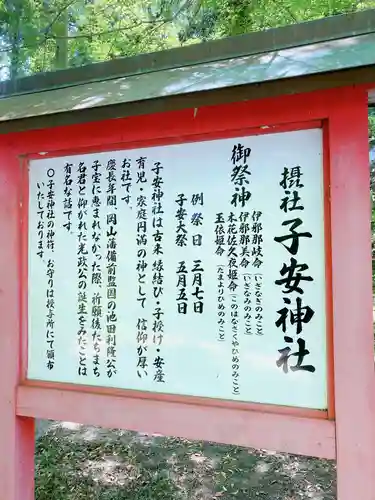 摂社 子安神社
御祭神
伊邪那岐命(いざなぎのみこと)
伊邪那美命(いざなみのみこと)
木花佐久夜姫命(このはなさくやひめのみこと)
玉依姫命(たまよりひめのみこと)
例祭日 三月七日
子安大祭 五月五日
子安神社は古来縁結び・子授け・安産
育児・家庭円満の神として、信仰が厚い
お社です。
慶長年間、岡山藩備前監国の池田利隆公が
子宝に恵まれなかった際、祈願後たちまち
名君と仰がれた光政公の誕生をみたことは
有名な話です。
〇子安神社の神符、お守りは授与所にて頒布
いたしております。